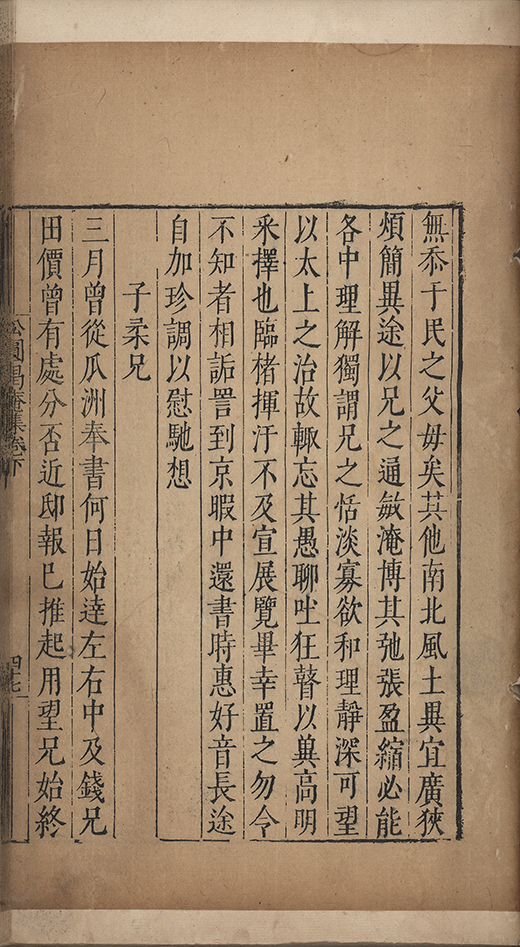 無忝于民之父毋矣其他南北風土異宜廣狹
煩簡異途以兄之通敏淹博其弛張盈縮必能
各中理解獨謂兄之恬淡寡欲和理靜深可望
以太上之治故輙忘其愚聊吐狂瞽以冀高明
采擇也臨楮揮汗不及宣展覽畢幸置之勿令
不知者相詬詈到京暇中還書時惠好音長途
自加珍調以慰馳想
子柔兄
三月曾從瓜洲奉書何日始達左右中及錢兄
田價曾有處分否近邸報已推起用望兄始終
松圓偈庵集卷下
四七